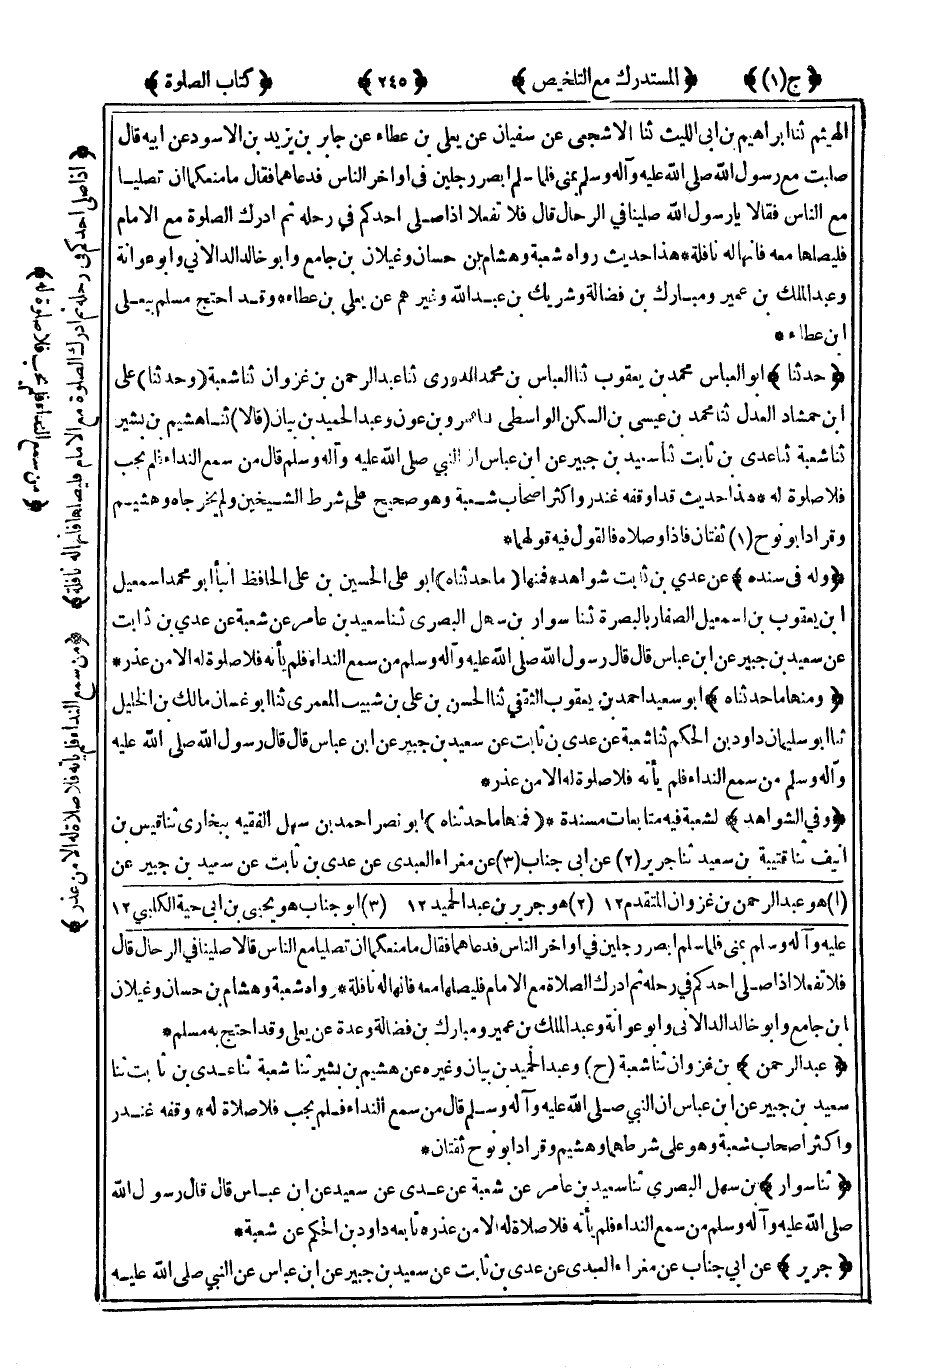 ﴿ ج(١) ﴾ ﴿ المستدرك مع التلخيص ﴾ ﴿ ٢٤٥ ﴾ ﴿ كتاب الصلوة ﴾
الهيثم ثنا ابراهيم بن ابى الليث ثنا الاشجعى عن سفيان عن يعلى بن عطاء عن جابر بن يزيد بن الاسود عن ابيه قال
صليت مع رسول الله صلى الله عليه وآله وسلم بمنى فلما سلم ابصر رجلين فى اواخر الناس فدعاهما فقال ما منعكما ان تصليا
مع الناس فقالا يا رسول الله صلينا في الرحال قال فلا تفعلا اذا صلى احدكم في رحله ثم ادرك الصلوة مع الامام
فليصلها معه فانها له نافلة * هذا حديث رواه شعبة وهشام بن حسان وغيلان بن جامع وابو خالد الدالاني وابو عوانة
وعبد الملك بن عمير ومبارك بن فضالة وشريك بن عبد الله وغير هم عن يعلي بن عطاء * وقد احتج مسلم بيعلى
ابن عطاء *
﴿ حدثنا ﴾ ابو العباس محمد بن يعقوب ثنا العباس بن محمد الدورى ثنا عبد الرحمن بن غزوان ثنا شعبة (وحدثنا) على
ابن حمشاد العدل ثنا محمد بن عيسى بن السكن الواسطى ثنا عمرو بن عون وعبد الحميد بن بيان (قالا) ثنا هشيم بن بشير
ثنا شعبة ثنا عدى بن ثابت ثنا سعيد بن جبير عن ابن عباس ان النبي صلى الله عليه وآله وسلم قال من سمع النداء فلم يجب
فلا صلوة له * هذا حديث قد اوقفه غندر واكثر اصحاب شعبة وهو صحيح على شرط الشيخين ولم يخرجاه وهشيم
وقراد ابو نوح (١) ثقتان فاذا وصلاه فالقول فيه قولهما *
﴿ وله فى سنده ﴾ عن عدي بن ثابت شواهد * فمنها (ما حدثناه) ابو على الحسين بن على الحافظ انبأ ابو محمد اسمعيل
ابن يعقوب بن اسمعيل الصفار بالبصرة ثنا سوار بن سهل البصرى ثنا سعيد بن عامر عن شعبة عن عدي بن ثابت
عن سعيد بن جبير عن ابن عباس قال قال رسول الله صلى الله عليه وآله وسلم من سمع النداء فلم يأته فلا صلوة له الا من عذر *
﴿ ومنها ما حدثناه ﴾ ابو سعيد احمد بن يعقوب الثقفي ثنا الحسن بن على بن شبيب المعمرى ثنا ابو غسان مالك بن الخليل
ثنا ابو سليمان داود بن الحكم ثنا شعبة عن عدى بن ثابت عن سعيد بن جبير عن ابن عباس قال قال رسول الله صلى الله عليه
وآله وسلم من سمع النداء فلم يأته فلا صلوة له الا من عذر *
﴿ وفي الشواهد ﴾ لشعبة فيه متابعات مسندة * (فمنها ما حدثناه) ابو نصر احمد بن سهل الفقيه ببخارى ثنا قيس بن
انيف ثنا قتيبة بن سعيد ثنا جرير (٢) عن ابى جناب (٣) عن مغراء العبدى عن عدى بن ثابت عن سعيد بن جبير عن
(١) هو عبد الرحمن بن غزوان المتقدم ١٢ (٢) هو جرير بن عبد الحميد ١٢ (٣) ابو جناب هو يحيى بن ابى حية الكلبي ١٢
عليه وآله وسلم بمنى فلما سلم ابصر رجلين في اواخر الناس فدعاهما فقال ما منعكما ان تصليا مع الناس قالا صلينا في الرحال قال
فلا تفعلا اذا صلى احدكم في رحله ثم ادرك الصلاة مع الامام فليصلها معه فانها له نافلة * رواه شعبة وهشام بن حسان وغيلان
ابن جامع وابو خالد الدالانى وابو عوانة وعبد الملك بن عمير ومبارك بن فضالة وعدة عن يعلى وقد احتج به مسلم *
﴿ عبد الرحمن ﴾ بن غزوان ثنا شعبة (ح) وعبد الحميد بن بيان وغيره عن هشيم بن بشير ثنا شعبة ثنا عدى بن ثابت ثنا
سعيد بن جبير عن ابن عباس ان النبي صلى الله عليه وآله وسلم قال من سمع النداء فلم يجب فلا صلاة له * وقفه غندر
واكثر اصحاب شعبة وهو على شرطهما وهشيم وقراد ابو نوح ثقتان *
﴿ ثنا سوار ﴾ بن سهل البصري ثنا سعيد بن عامر عن شعبة عن عدى عن سعيد عن ابن عباس قال قال رسول الله
صلى الله عليه وآله وسلم من سمع النداء فلم يأته فلا صلاة له الا من عذر * تابعه داود بن الحكم عن شعبة *
﴿ جرير ﴾ عن ابي جناب عن مغراء العبدى عن عدى بن ثابت عن سعيد بن جبير عن ابن عباس عن النبي صلى الله عليه
﴿ اذا صلى احدكم فى رحله ثم ادرك الصلوة مع الامام فليصلها فانها له نافلة ﴾
﴿ من سمع النداء فلم يجب فلا صلوة له ﴾
﴿ من سمع النداء فلم يأته فلا صلاة له الا من عذر ﴾